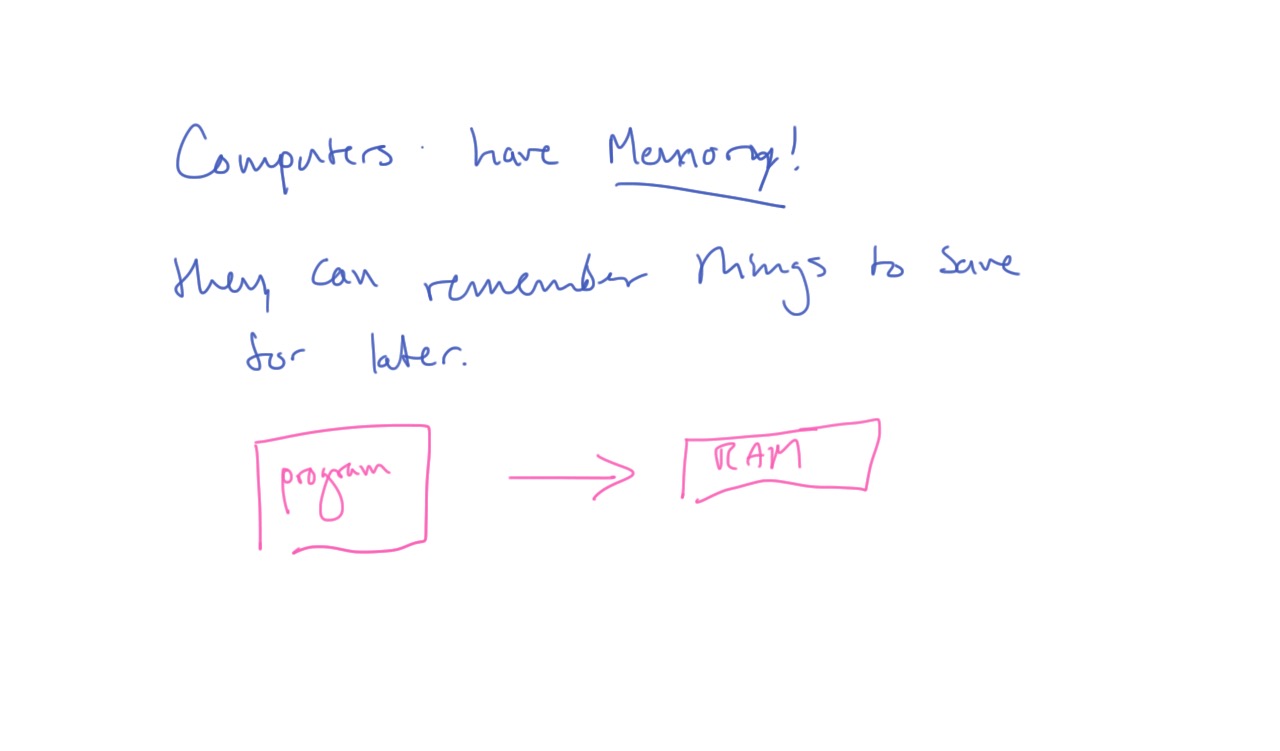 Computers have Memory!
they can remember things to save
for later.
program
RAM